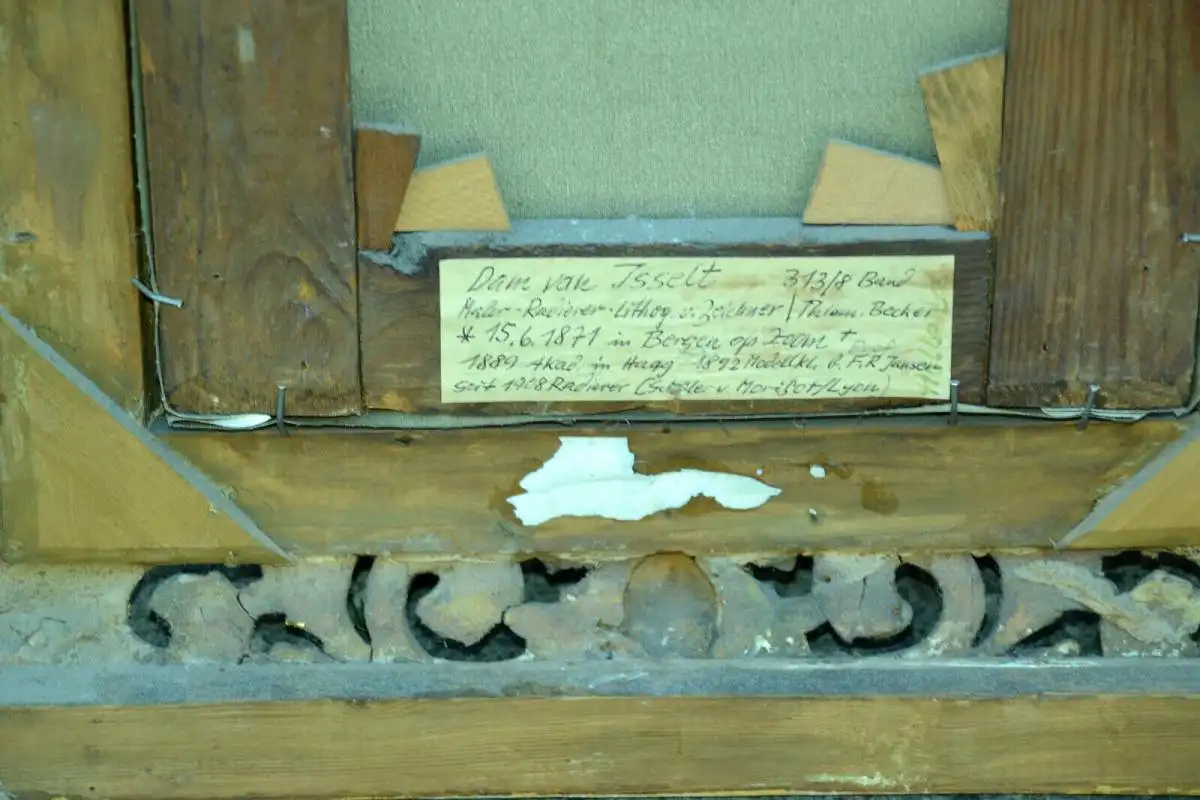 Dam van Isselt 313/8 Band
Maler-Radierer-Lithog. u. Zeichner / Thieme. Becker
* 15.6.1871 in Bergen op Zoom +
1889 Akad in Haag 1892 Modellkl. b. F.R Jansen
seit 1908 Radierer (Schüle v. Morillot/Lyon)